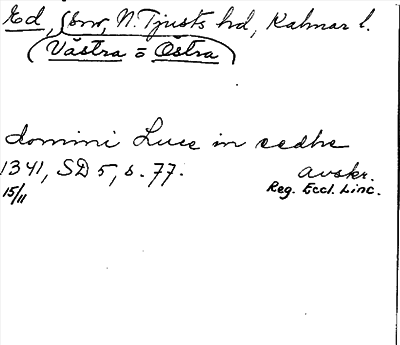 Ed, snr, N. Tjusts hd, Kalmar l.
(Västra o Östra)
domini Luce in eedhe
1341, SD 5, s. 77. avskr.
15/11 Reg. Eccl. Linc.